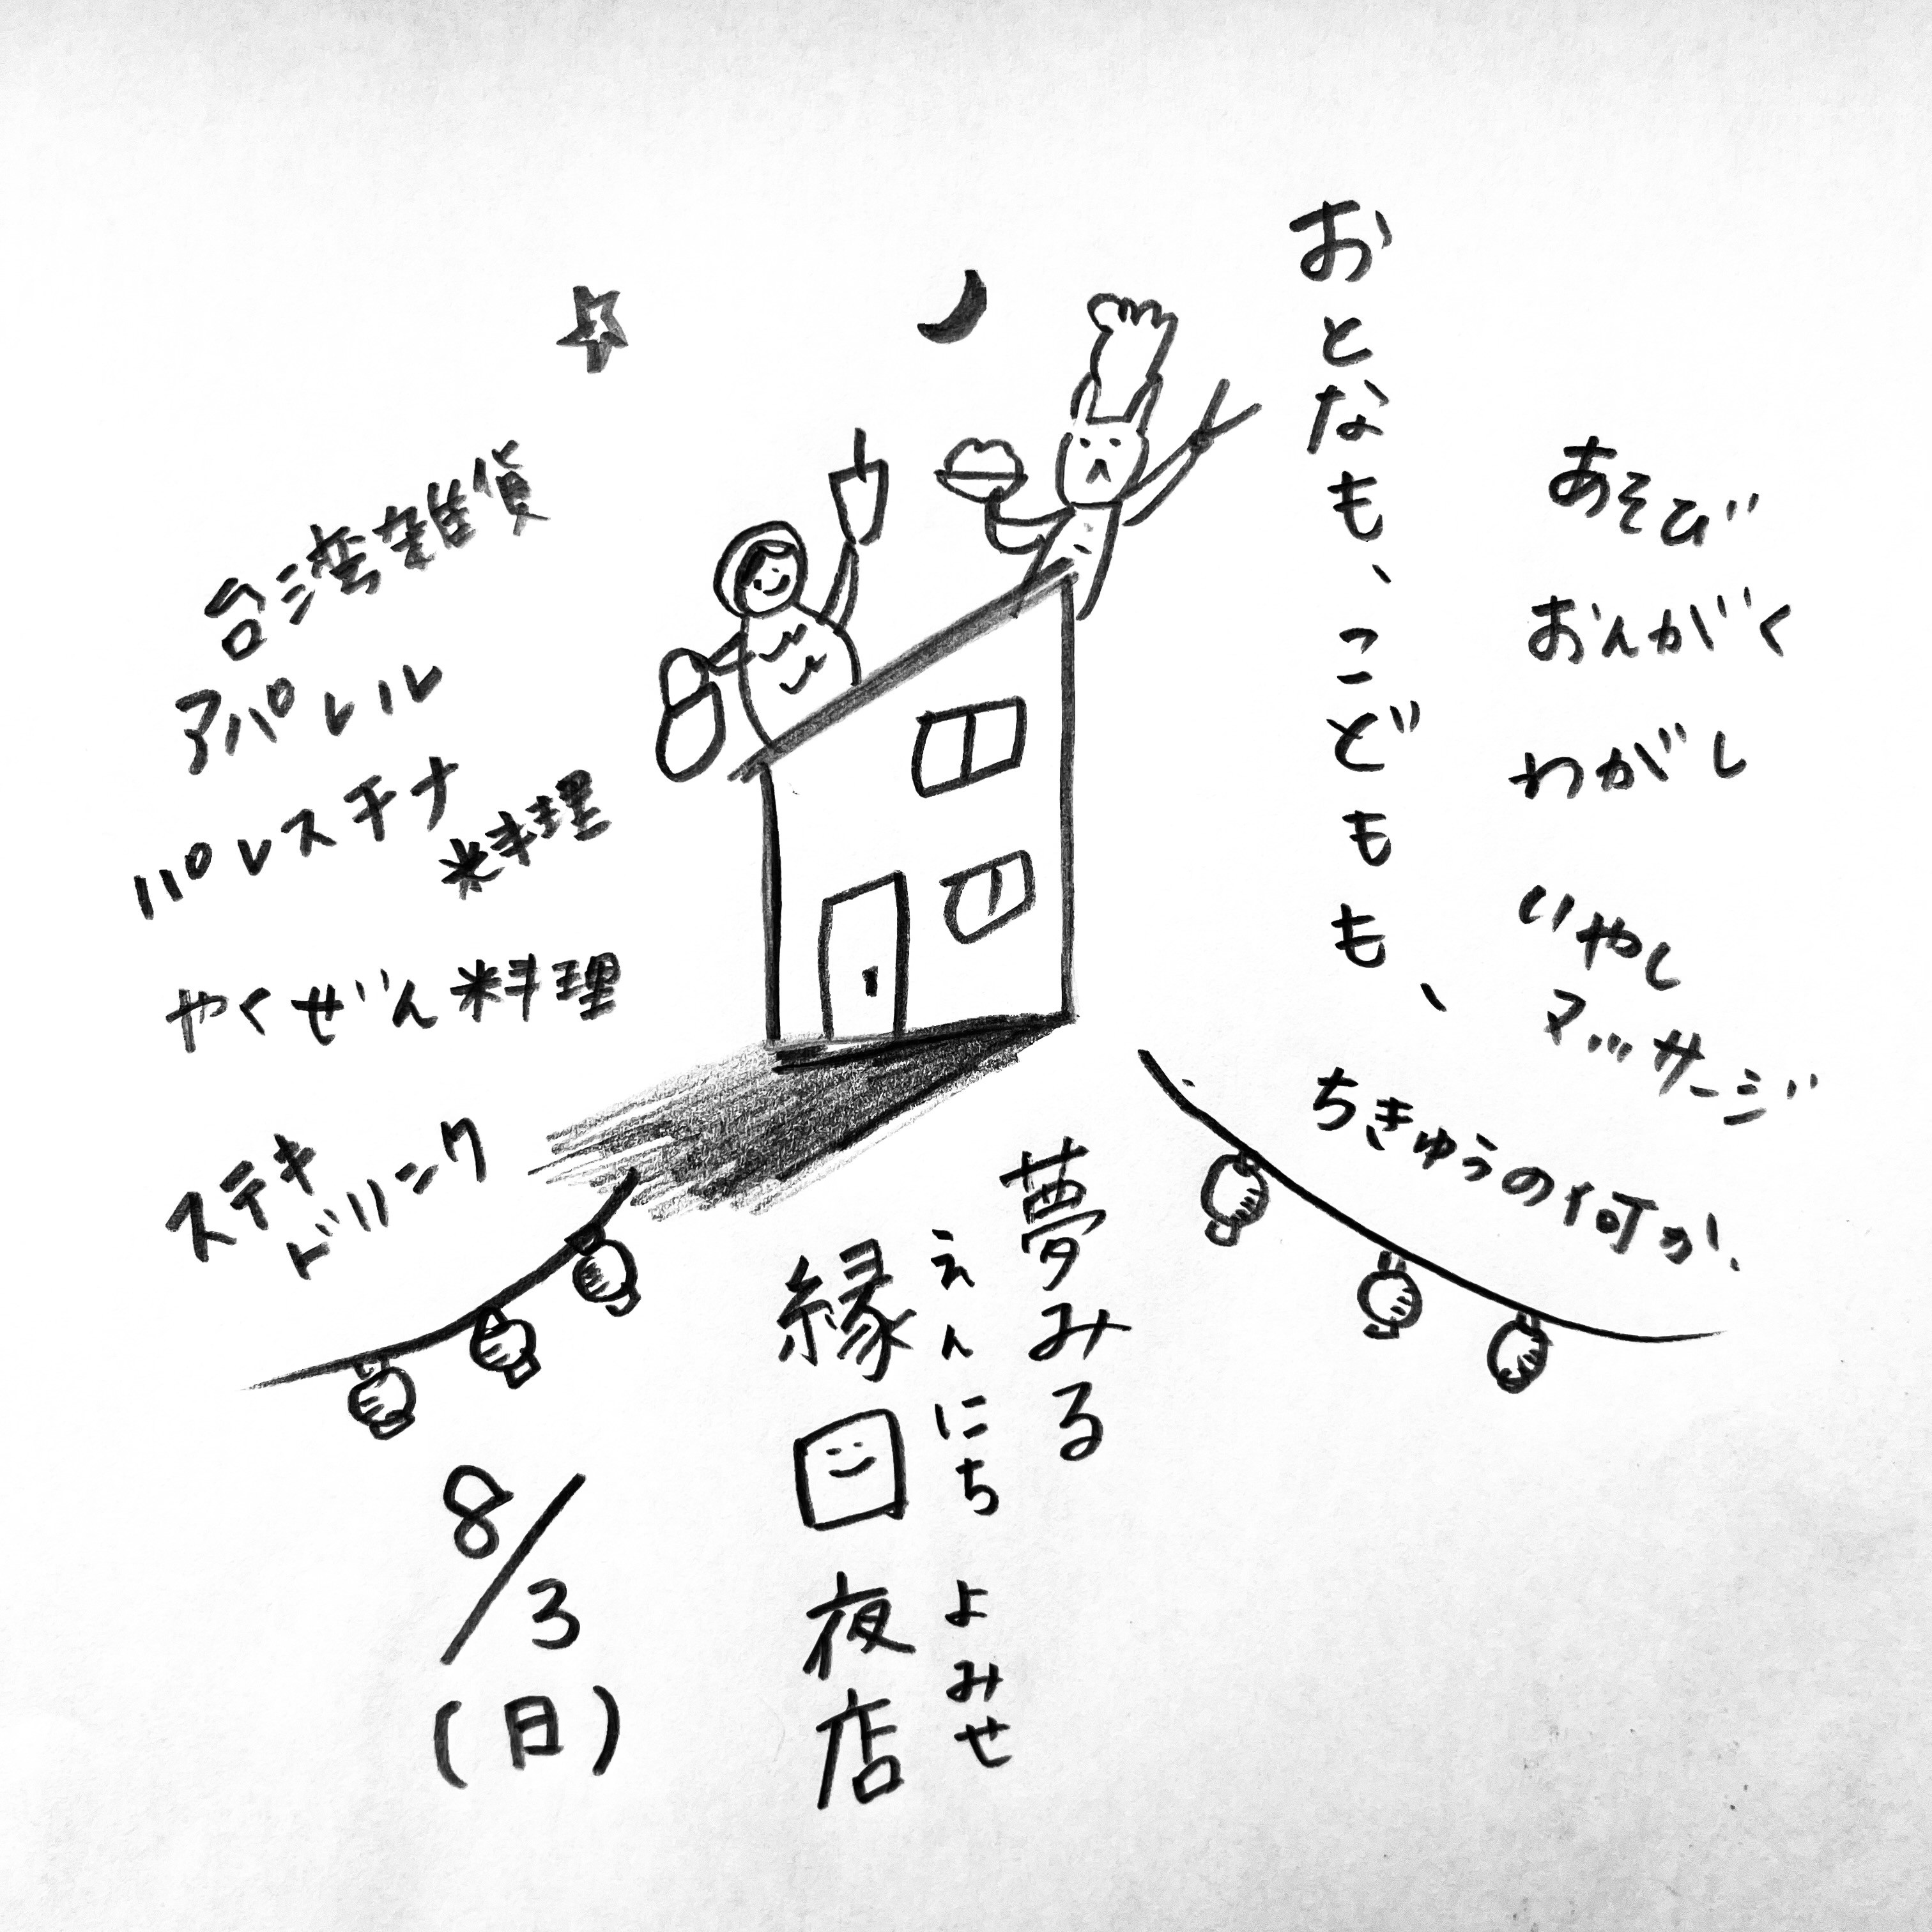 おとなも、こどもも、
ちきゅうの何か!
あそび
おんがく
わがし
いやし
マッサージ
台湾雑貨
アパレル
パレスチナ
料理
やくぜん料理
ステキ
ドリンク
夢みる
えんにち よみせ
縁日夜店
8/3
(日)